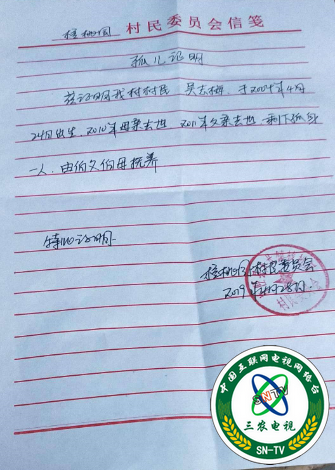 核桃园 村民委员会信笺
孤儿证明
兹证明我村村民 吴志梅,于2004年4月
24日出生,2010年母亲去世 2011年父亲去世 剩下孤身
一人,由伯父伯母抚养
特此证明
核桃园村民委员会
2019年4月28日
中国互联网电视网络台
SN-TV
三农电视
SN-TV